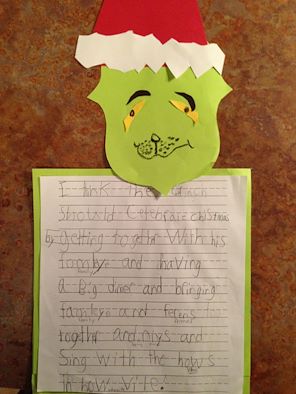 I tink the Grinch
Should Celebrate christmas
by getting togethr With his
famliye and having
a Big diner and bringing
famleye and ferens
togethr and niys and
Sing with the hows
in how vile!